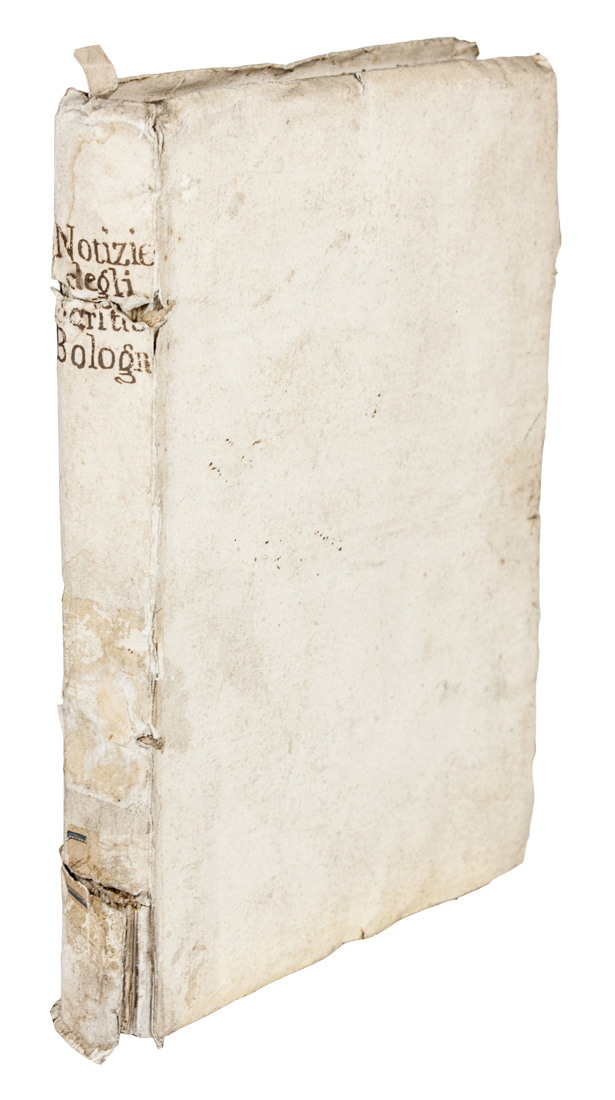 Notizie
degli
critto
Bologn